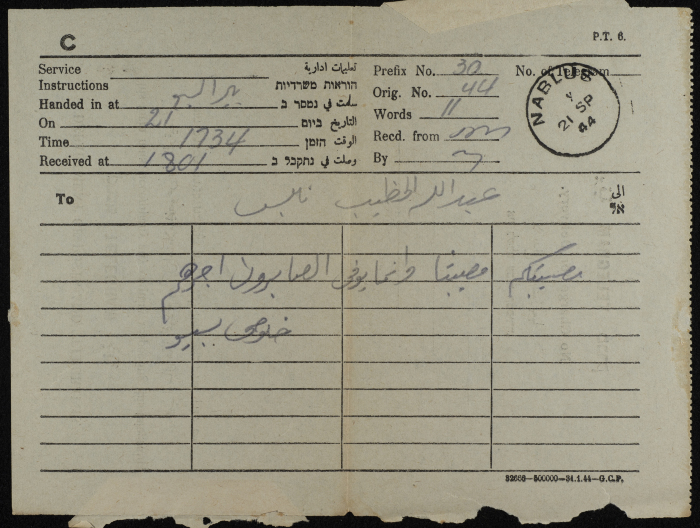 C
P.T. 6.
Service تعليمات ادارية
Instructions הוראות משרדיות
Handed in at سلمت في נמסר ב
On 21 التاريخ ביום
Time 1734 الوقت הזמן
Received at 1801 وصلت في נתקבל ב
Prefix No. 30 No. of Telegram
Orig. No. 44
Words 11
Recd. from
By
NABLUS
21 SP
44
To عبد الله الخطيب نابلس الى
אל
مصيبتكم مصيبتنا وانما يوفى الصابرون اجرهم
32686—500000—31.1.44—G.C.P.